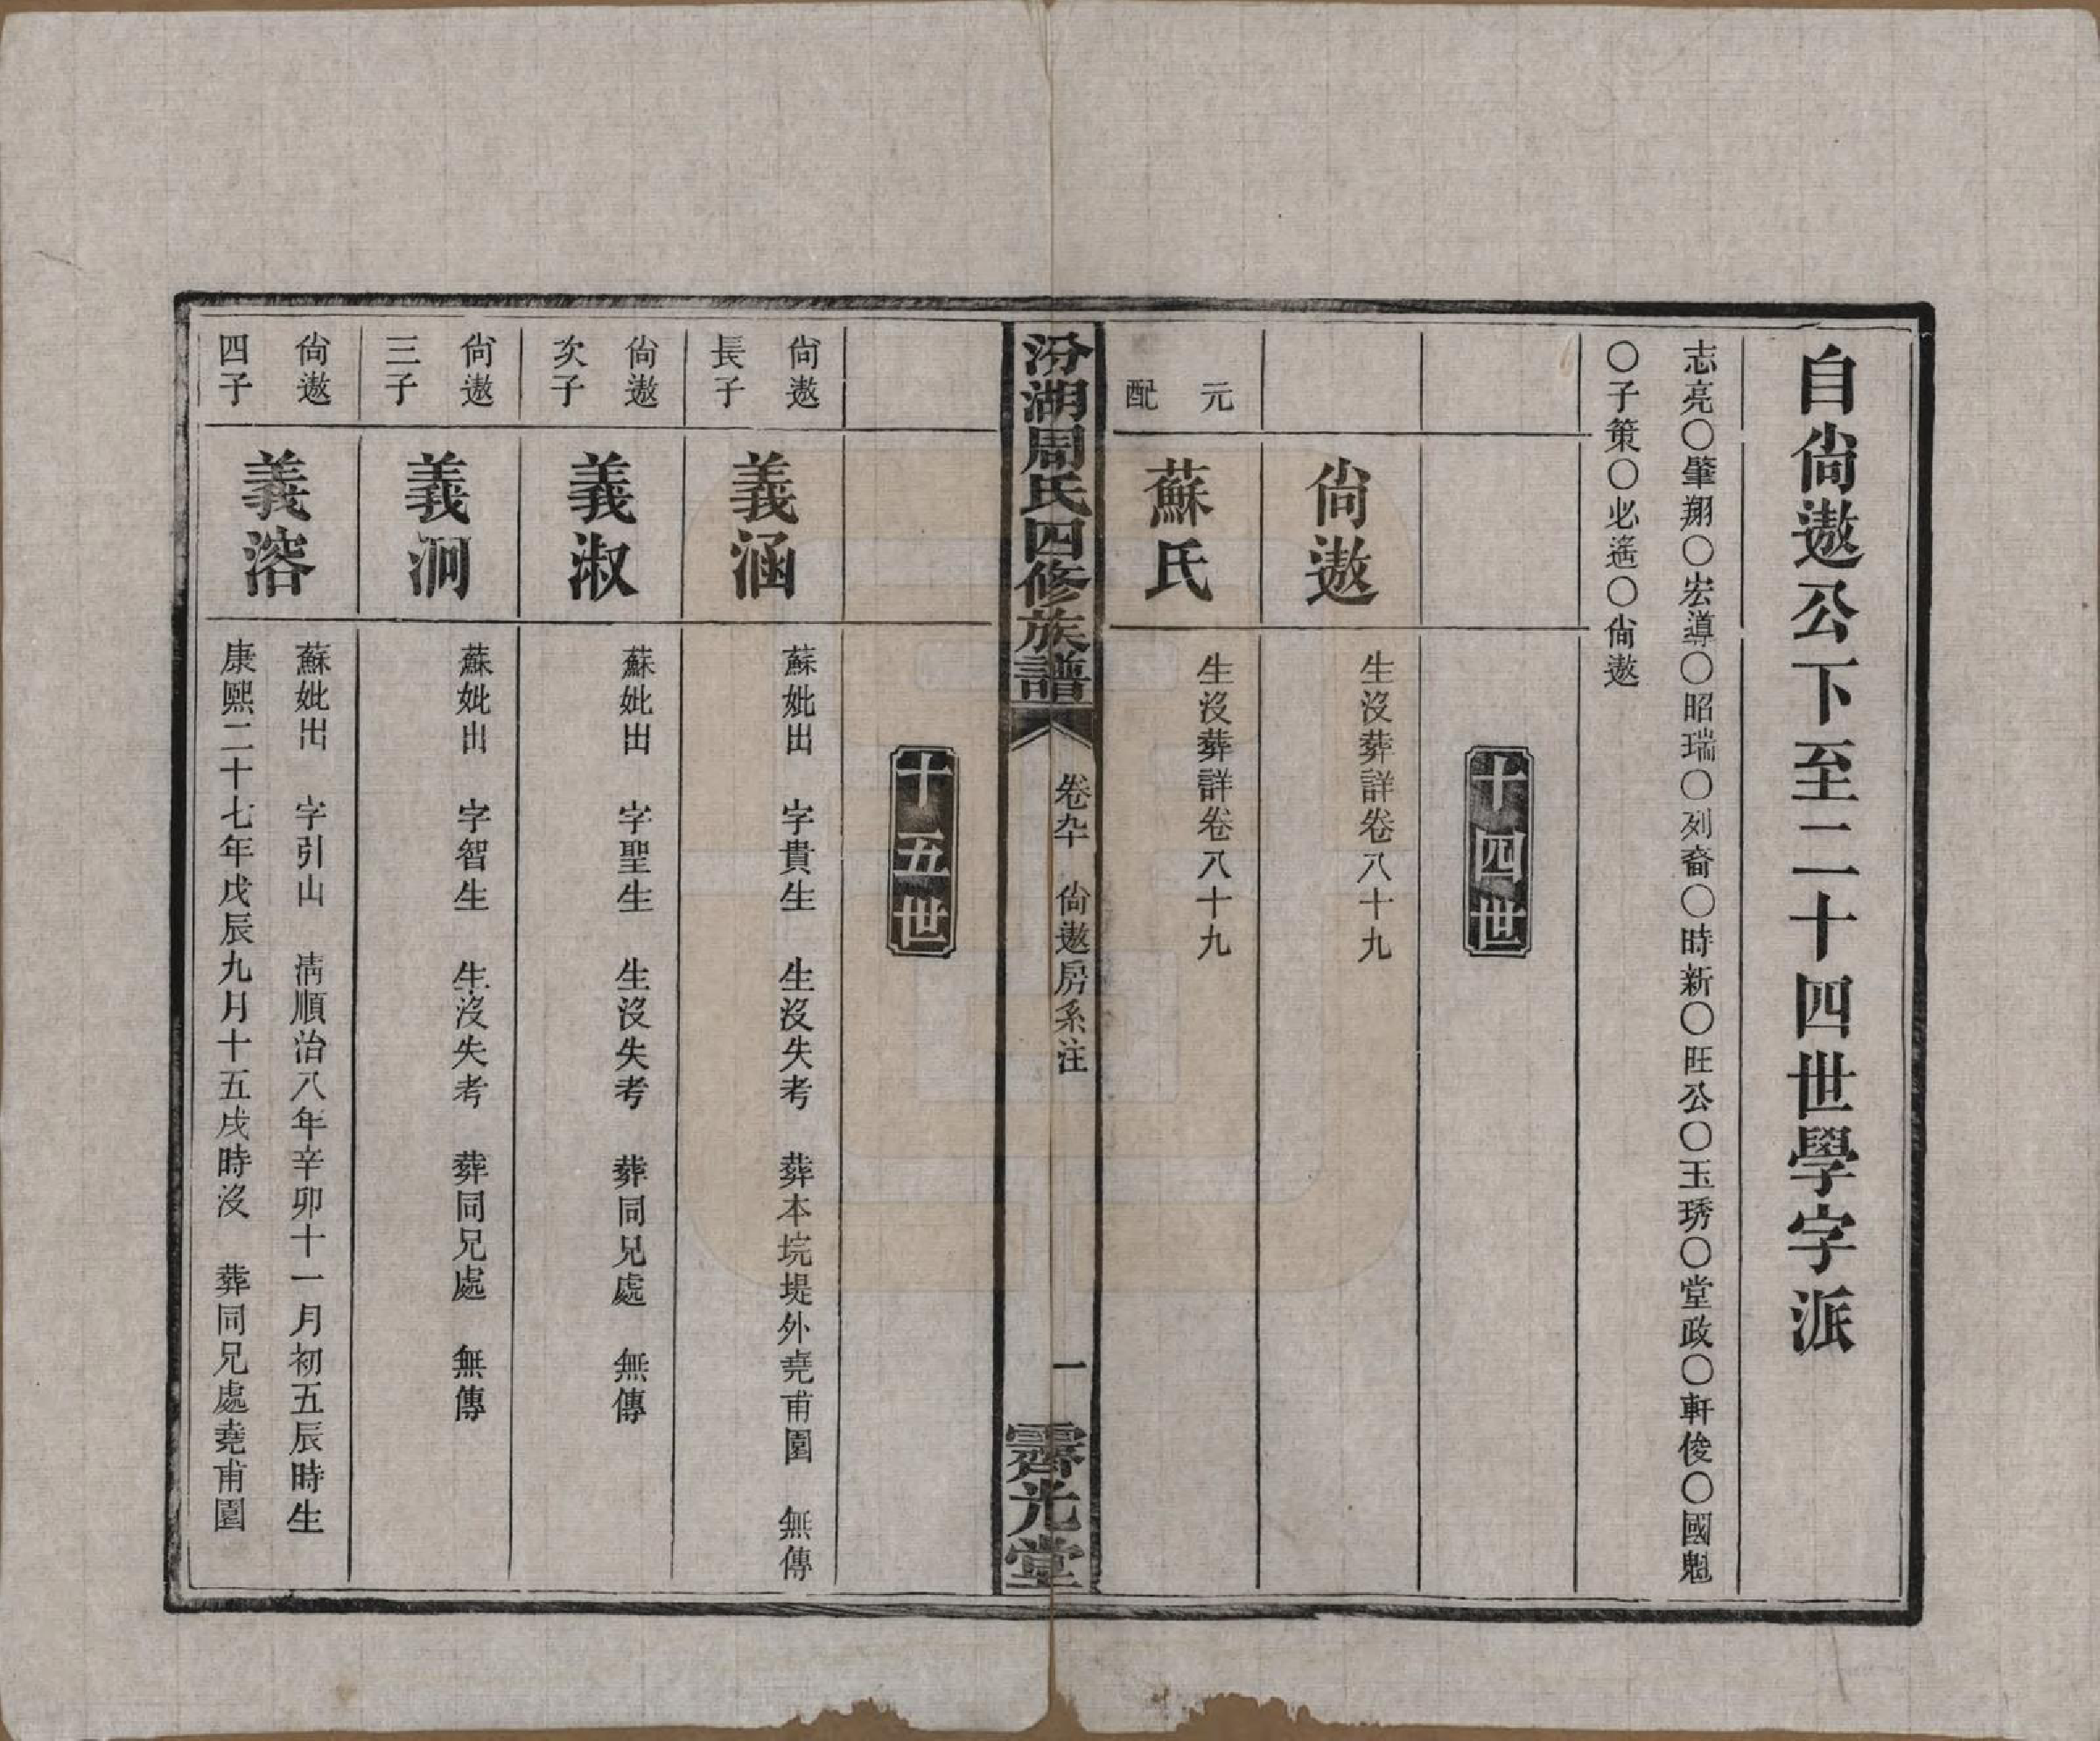 自尙遨公下至二十四世學字派
志亮〇肇翔〇宏導〇昭瑞〇列裔〇時新〇旺公〇玉琇〇堂政〇軒俊〇國魁
〇子策〇必遙〇尙遨
十四世
尙遨
生沒葬詳卷八十九
元配
蘇氏
生沒葬詳卷八十九
汾湖周氏四修族譜
卷九十 尙遨房系注
一
霽光堂
十五世
尙遨
長子
義涵
蘇妣出 字貴生 生沒失考 葬本垸堤外堯甫園 無傳
尙遨
次子
義淑
蘇妣出 字聖生 生沒失考 葬同兄處 無傳
尙遨
三子
義泂
蘇妣出 字智生 生沒失考 葬同兄處 無傳
尙遨
四子
義溶
蘇妣出 字引山 淸順治八年辛卯十一月初五辰時生
康熙二十七年戊辰九月十五戌時沒 葬同兄處堯甫園